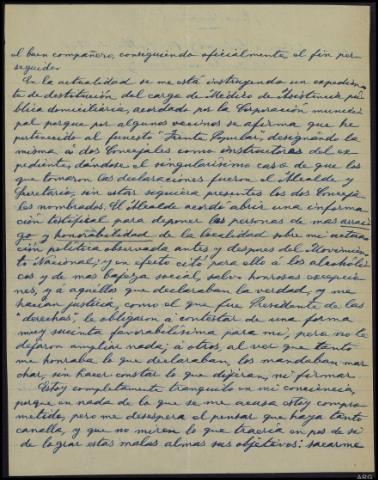 el buen compañero, consiguiendo oficialmente, el fin per-
seguido.
En la actualidad se me está instruyendo un expedien-
te de destitución del cargo de Médico de Asistencia pú-
blica domiciliaria, acordado por la Corporación munici-
pal porque por algunos vecinos se afirma que he
pertenecido al funesto "Frente Popular" designando la
misma á dos Concejales como instructores del ex-
pediente, dándose el singularísimo caso de que los
que tomaron las declaraciones fueron el Alcalde y
Secretario, sin estar siquiera presentes los dos Conceja-
les nombrados. El Alcalde acordó abrir una informa-
ción testifical para deponer las personas de mas arrai-
go y honorabilidad de la localidad sobre mi actua-
ción política observada antes y despues del Movimien-
to Nacional; y en efecto citó para ello á los alcohóli-
cos y de mas bajeza social, salvo honrosas excepcio-
nes, y á aquéllos que declaraban la verdad, y me
hacian justicia, como el que fue Presidente de las
"derechas", le obligaron á contestar de una forma
muy sucinta favorabilísima para mi, pero no le
dejaron ampliar nada; á otros, al ver que tanto
me honraba lo que declaraban, los mandaban mar-
char, sin hacer constar lo que dijeran, ni firmar.
Estoy completamente tranquilo en mi conciencia,
porque en nada de lo que se me acusa estoy compro-
metido, pero me desespera el pensar que haya tanto
canalla, y que no miren lo que traería en pos de sí
de lograr estas malas almas sus objetivos: sacarme
ARG